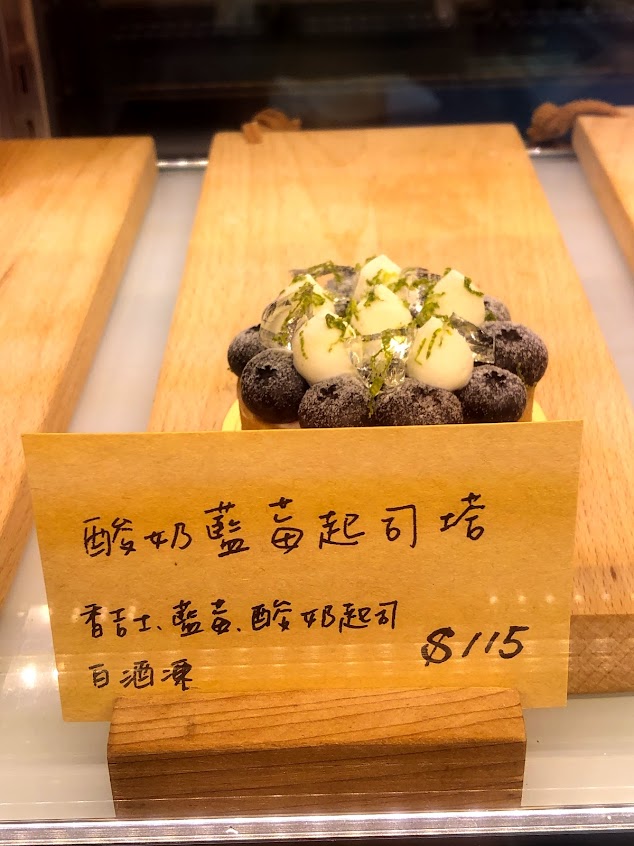 酸奶藍莓起司塔
香吉士、藍莓、酸奶起司
白酒凍
$115